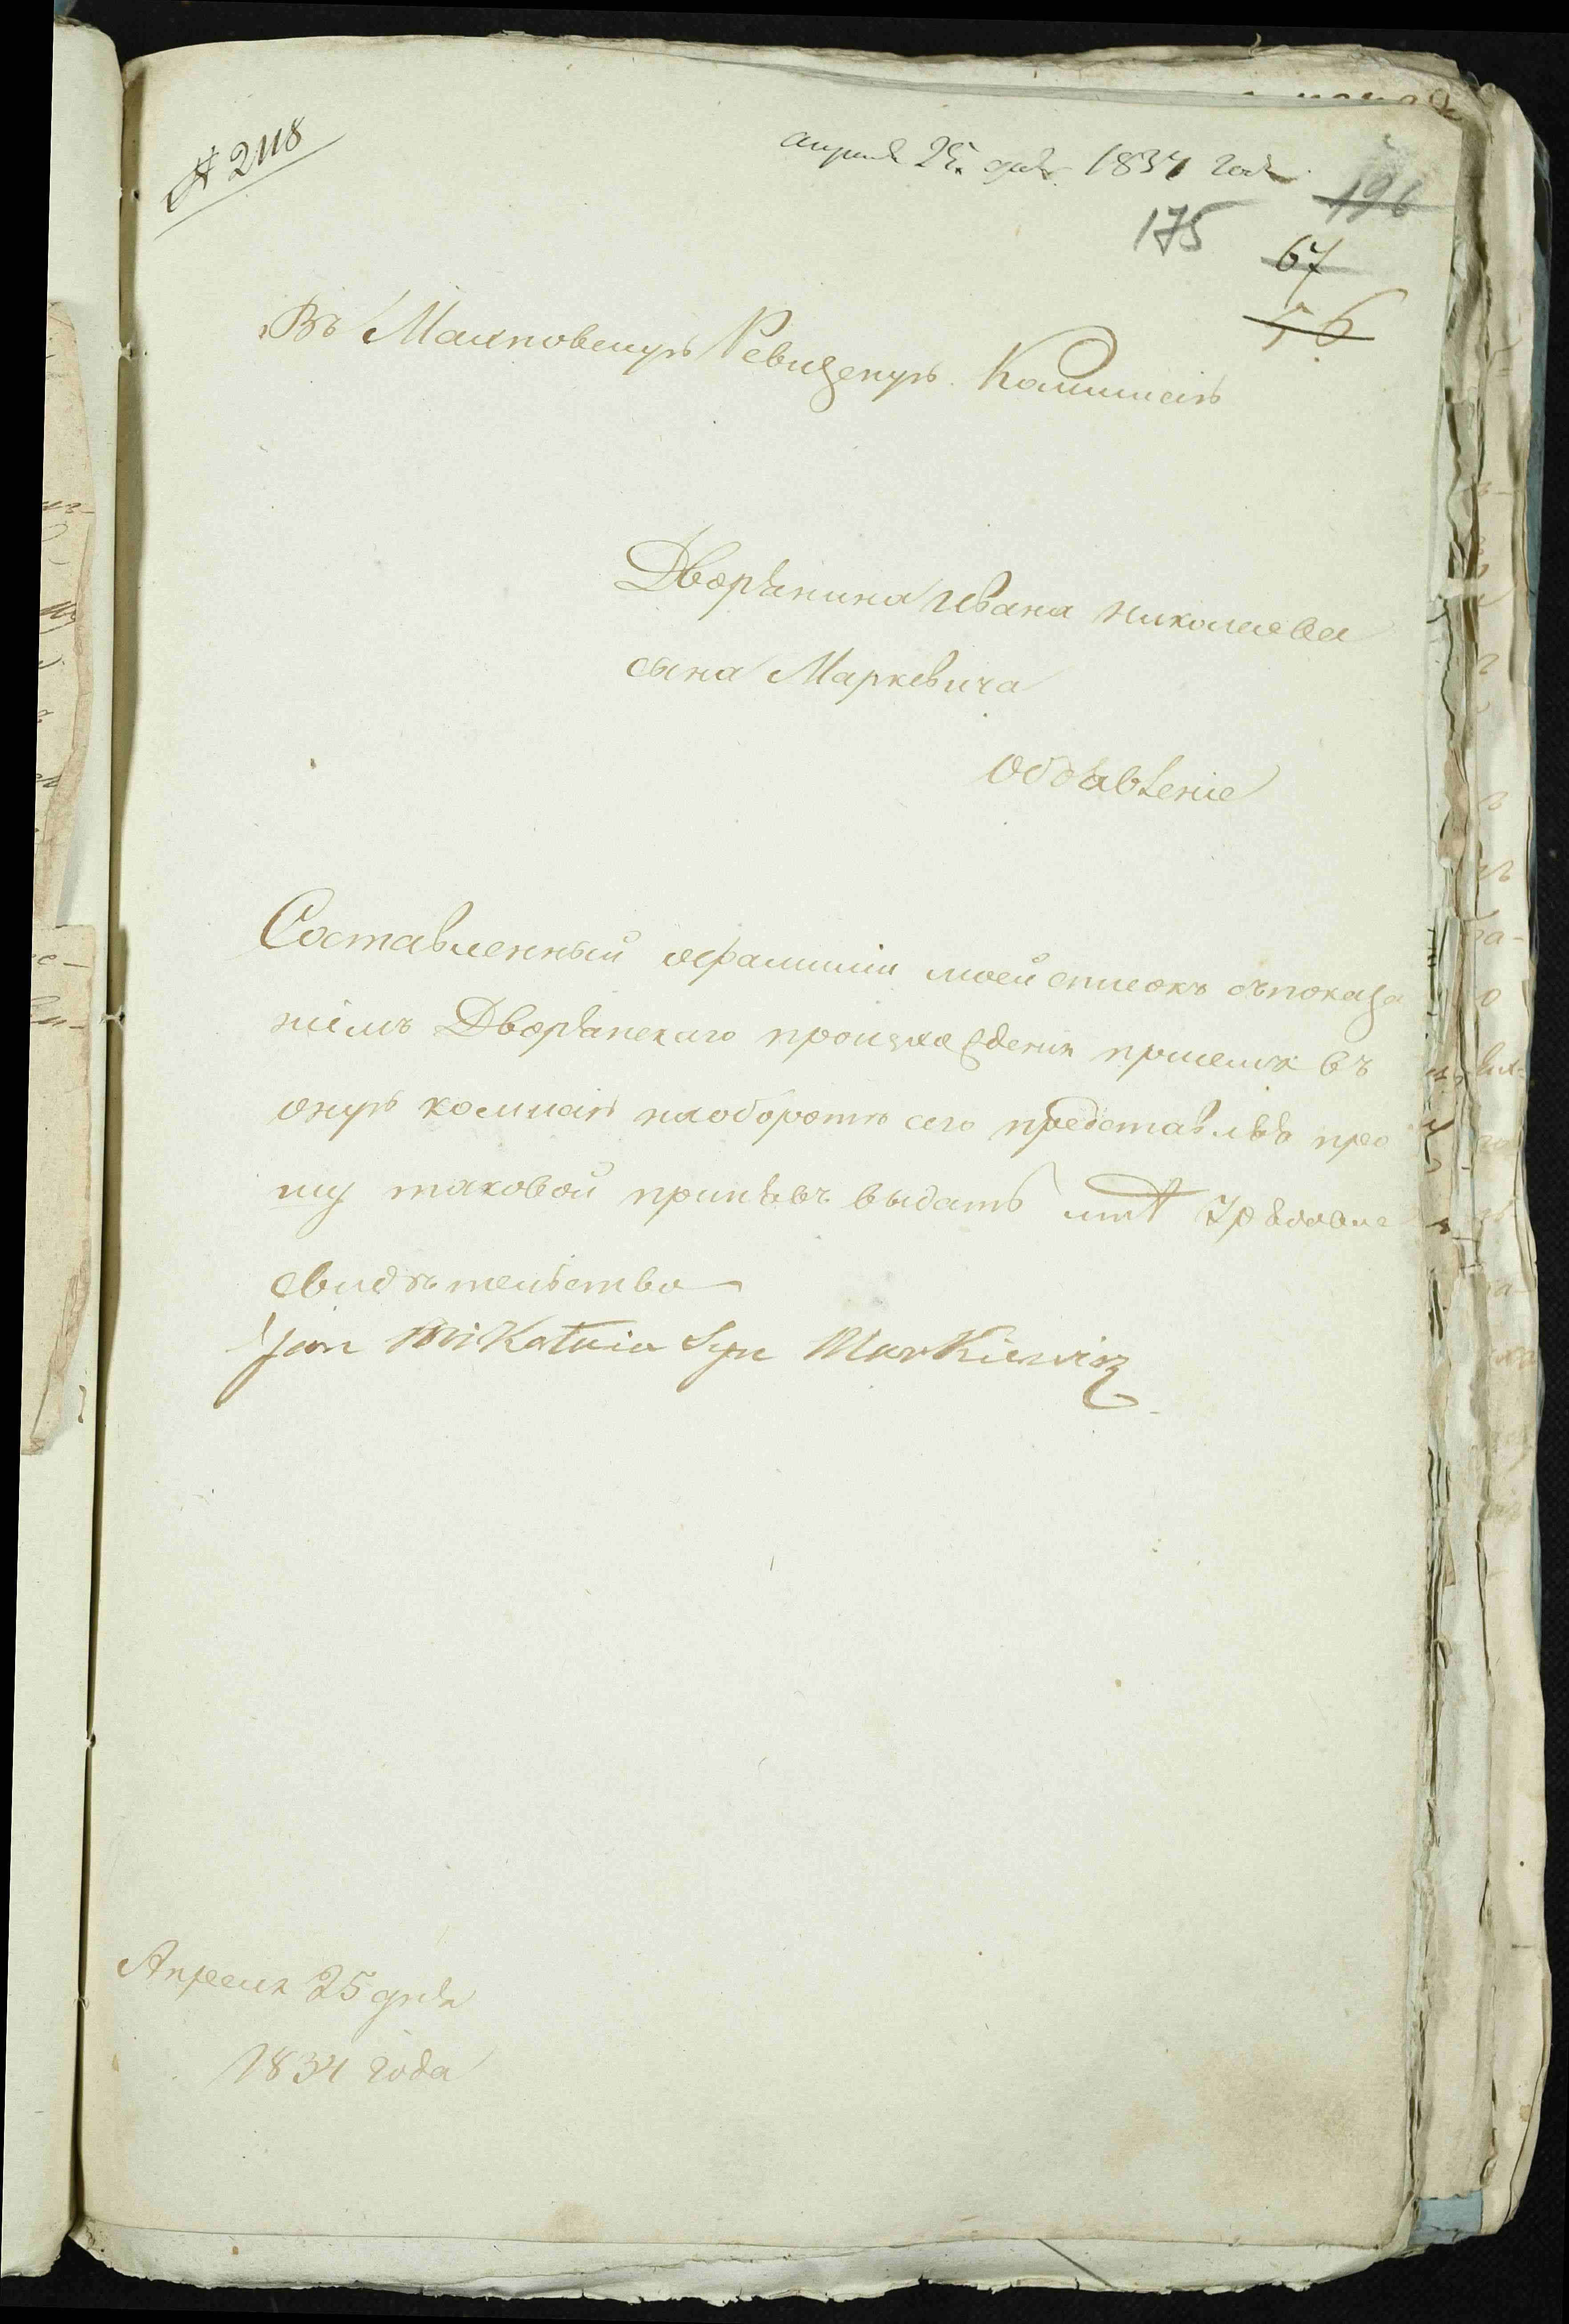 № 2118
апреля 25. дня 1834 года
196
175
67
56
Въ Ревизскую Коммисію
Дворянина Ивана Николаева
сына Маркевича
Обоявленіе
Составленный офамиліи моей списокъ съпоказа
ніемъ Дворянскаго происхождения приемля въ
оную комисію наоборотѣ сего представляя про
шу таковой принявъ выдать мнѣ
свидѣтельство
Jan Mikołaia Syn Markiewicz
Апреля 25 дня
1834 года